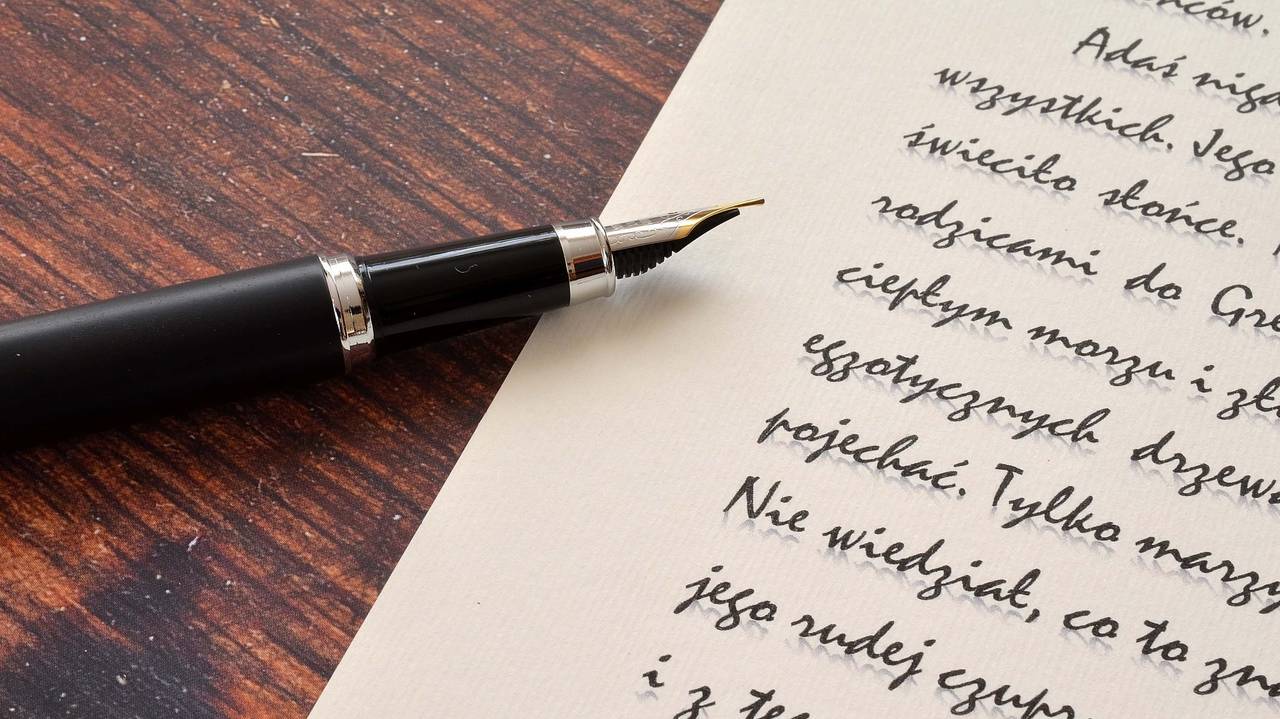 Adaś
wszystkich. Jego
świeciło słońce.
rodzicami do
ciepłym morzu i
egzotycznych drzew
pojechać. Tylko
Nie wiedział, co to
jego rudej
i z